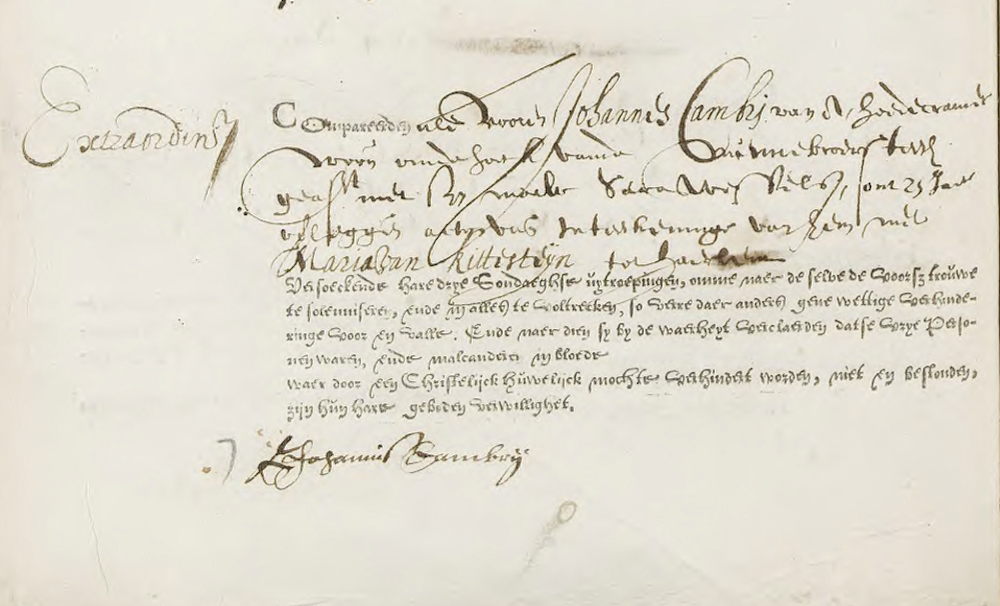 Extraordins
Compareerden als vooren Johannes Cambij van A, hoedecramer
woon inde hoeck vande Minnebroersteech
geass met sijn moeder Sara Wessels, out 25 Jaer
actum inteeckeninge van hem met
Maria van Kittesteyn tot haerlem
Versoeckende hare drye Sondaeghse uytroepingen, omme naer de selve de voorsz trouwe
te solemniseren, ende in alles te voltrecken, so verre daer anders gene wettige verhinde-
ringe voor en valle. Ende naer dien sy by de waerheyt verclaerden datse vrye Perso-
nen waren, ende malcanderen in bloede
waer door een Christelijck huwelijck mochte verhindert worden, niet en bestonden,
zijn hun hare geboden verwillighet.
Johannis Cambij